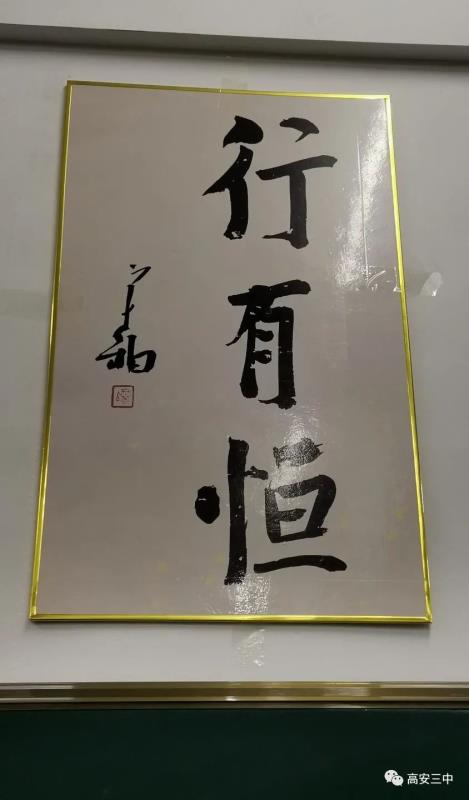 行有恒
高安三中